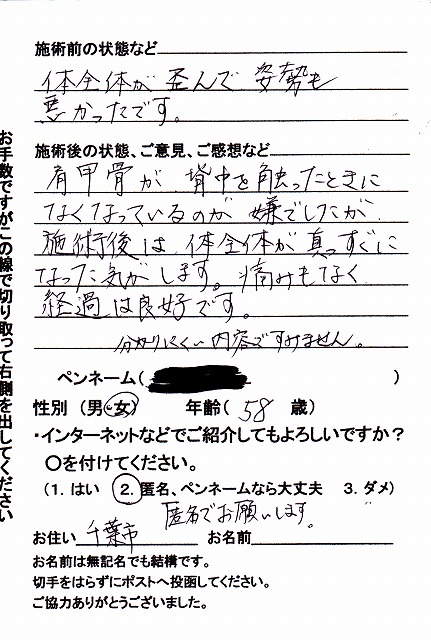 施術前の状態など
体全体が 歪んで 姿勢も
悪かったです。
施術後の状態、ご意見、ご感想など
肩甲骨が 背中を触ったときに
なくなっているのが 嫌でしたが
施術後は 体全体が真っすぐに
なった気がします。痛みもなく
経過は良好です。
分かりにくい内容ですみません。
ペンネーム( )
性別 (男・女) 年齢( 58 歳)
・インターネットなどでご紹介してもよろしいですか?
〇を付けてください。
(1. はい 2. 匿名、ペンネームなら大丈夫 3. ダメ)
匿名でお願いします。
お住い 千葉市 お名前
お名前は無記名でも結構です。
切手をはらずにポストへ投函してください。
ご協力ありがとうございました。
お手数ですがこの線で切り取って右側を出してください